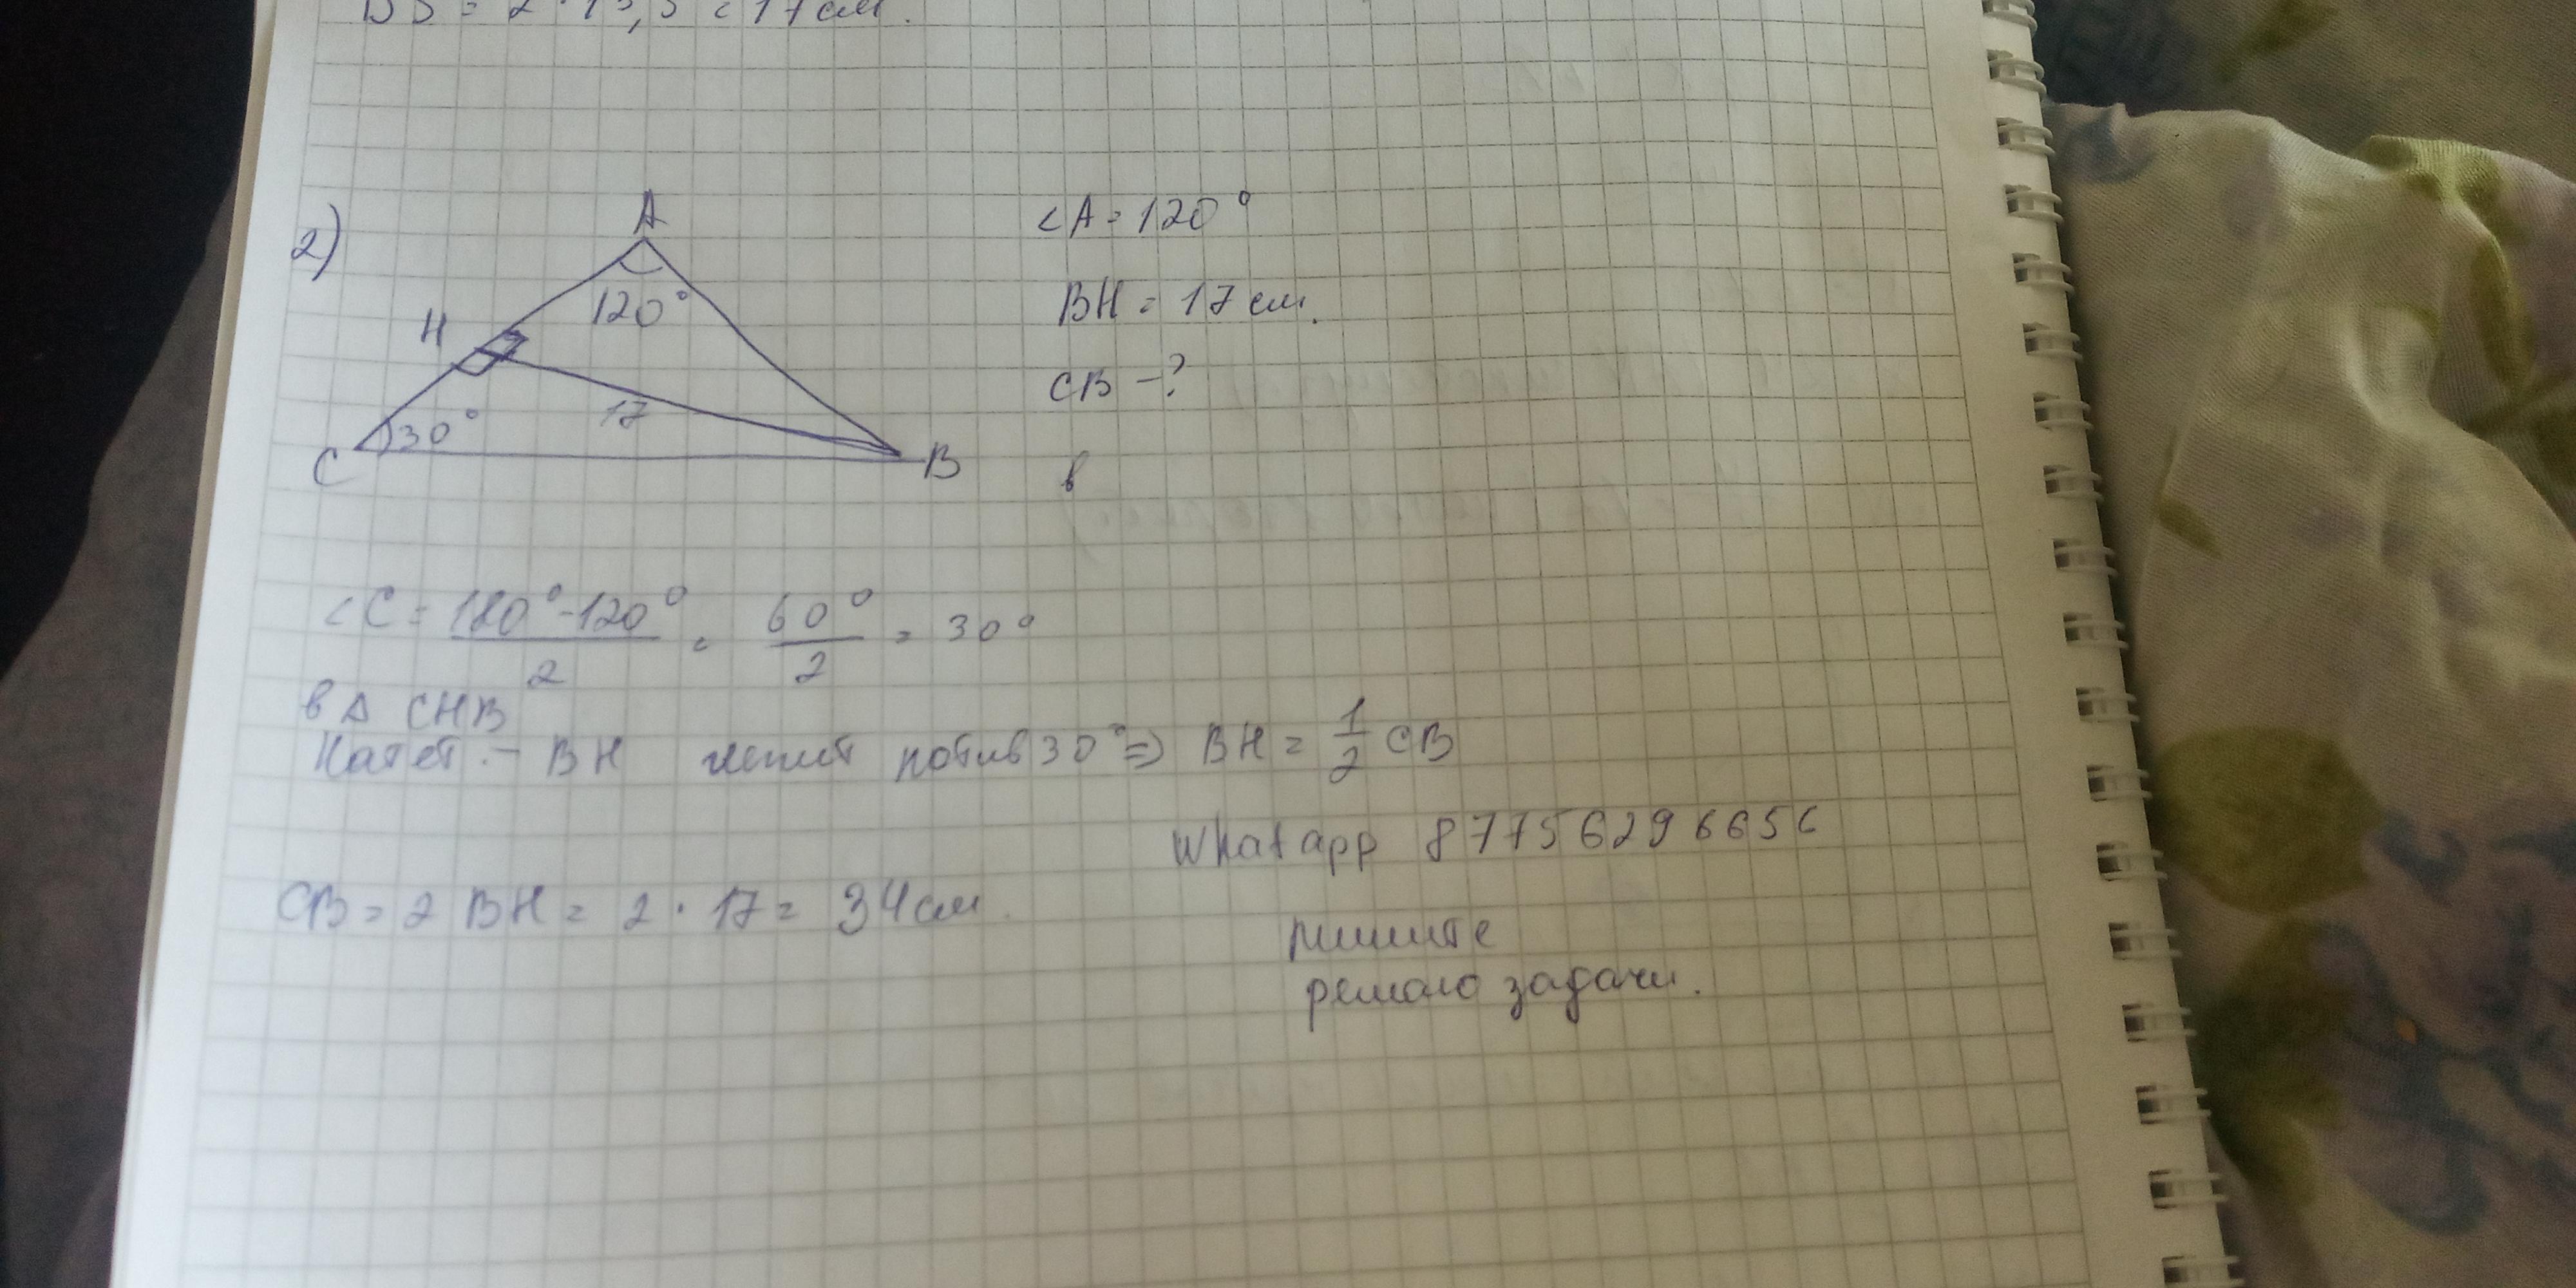 2)
A
120°
H
17
30°
C
B
<A = 120°
BH = 17 см.
CB – ?
в
<C = 180° - 120° / 2 = 60° / 2 = 30°
в Δ CHB
Катет – BH лежит потив 30° => BH = 1/2 CB
What app 87756296656
CB = 2 BH = 2 · 17 = 34 см.
пишите
решаю задачи.